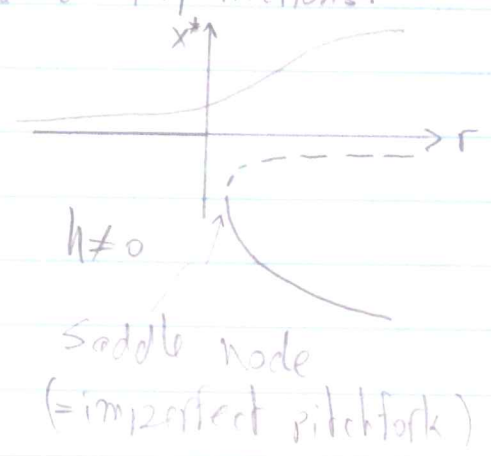 x*
r
h≠0
Saddle node
(=imperfect pitchfork)